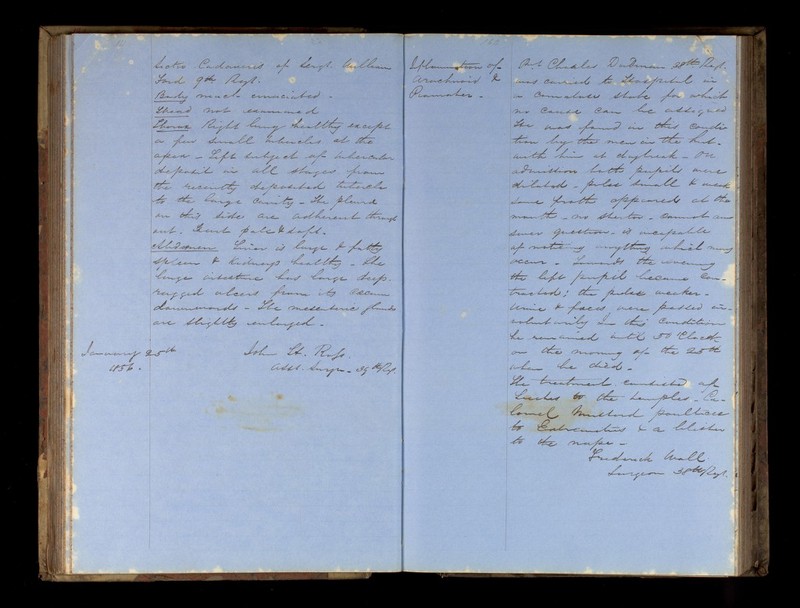 Sectio Cadaveris of Sergt. William
Ford 9th Regt.
Body much emaciated -
Head not examined
Thorax Right lung healthy except
a few small tubercles at the
apex - Left subject of tubercular
deposit in all stages from
the recently deposited tubercle
to the large cavity - The pleura
on this side are adherent through
out. Heart pale & soft.
Abdomen Liver is large & fatty
Spleen & Kidneys healthy - The
large intestine has large deep
ragged ulcers from its caecum
downwards - The mesenteric glands
are slightly enlarged -
January 25th
1856.
John St.
Asst. Surgn - 39th Regt.
Inflammation of
Arachnoid &
Piamater -
Pt Charles 38th Regt.
was carried to Hospital in
a comatose state for which
no cause can be assigned
He was found in this condi
tion by the men in the hut
with him at daybreak - On
admission both pupils were
dilated - pulse small & weak
some froth appeared at the
mouth - no stertor - cannot an
swer question - is incapable
of noticing anything which may
occur - Towards the evening
the left pupil became con
tracted; the pulse weaker -
Urine & faeces were passed in
voluntarily In this condition
he remained until 5 O'Clock
on the morning of the 25th
when he died -
The treatment consisted of
Leeches to the temples - Ca
lomel Mustard poultices
to Extremities & a blister
to the nape -
Frederick Wall
Surgeon 38th Regt.